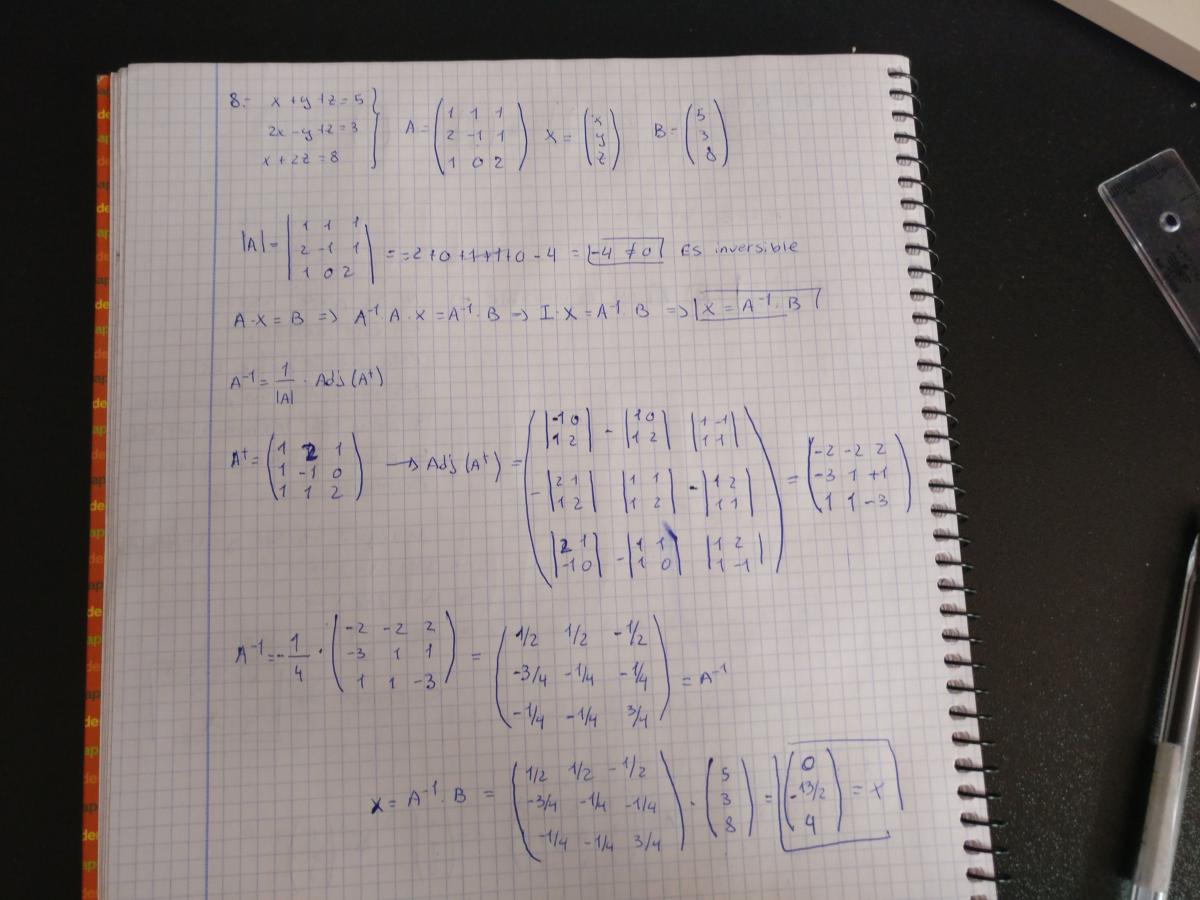 8.- x + y + z = 5
2x - y + z = 3
x + 2z = 8
A = ( 1 1 1 / 2 -1 1 / 1 0 2 ) X = ( x / y / z ) B = ( 5 / 3 / 8 )
|A| = | 1 1 1 / 2 -1 1 / 1 0 2 | = -2+0+1+1+0-4 = -4 ≠ 0 Es inversible
A·X = B => A⁻¹·A·X = A⁻¹·B → I·X = A⁻¹ B => X = A⁻¹·B
A⁻¹ = 1/|A| · Adj(Aᵗ)
Aᵗ = ( 1 2 1 / 1 -1 0 / 1 1 2 ) → Adj(Aᵗ) = ( |-1 0 / 1 2| -|1 0 / 1 2| |1 -1 / 1 1| / -|2 1 / 1 2| |1 1 / 1 2| -|1 2 / 1 1| / |2 1 / -1 0| -|1 1 / 1 0| |1 2 / 1 -1| ) = ( -2 -2 2 / -3 1 +1 / 1 1 -3 )
A⁻¹ = -1/4 · ( -2 -2 2 / -3 1 1 / 1 1 -3 ) = ( 1/2 1/2 -1/2 / -3/4 -1/4 -1/4 / -1/4 -1/4 3/4 ) = A⁻¹
X = A⁻¹·B = ( 1/2 1/2 -1/2 / -3/4 -1/4 -1/4 / -1/4 -1/4 3/4 ) · ( 5 / 3 / 8 ) = ( 0 / -13/2 / 4 ) = X